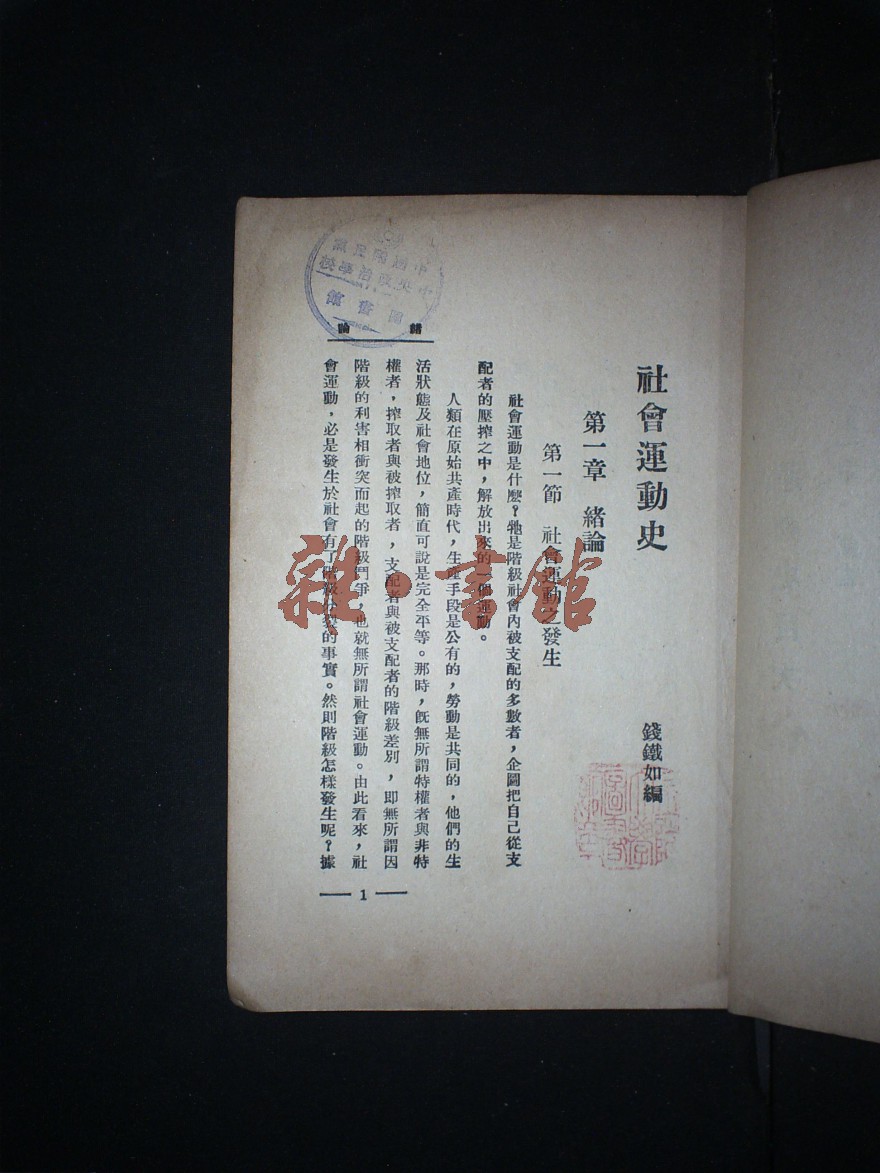 社會運動史
錢鐵如編
第一章 緒論
第一節 社會運動之發生
社會運動是什麼？牠是階級社會內被支配的多數者，企圖把自己從支
配者的壓搾之中，解放出來的一個運動。
人類在原始共產時代，生產手段是公有的，勞動是共同的，他們的生
活狀態及社會地位，簡直可說是完全平等。那時，旣無所謂特權者與非特
權者，搾取者與被搾取者，支配者與被支配者的階級差別，即無所謂因
階級的利害相衝突而起的階級鬥爭，也就無所謂社會運動。由此看來，社
會運動，必是發生於社會有了階級分裂的事實。然則階級怎樣發生呢？據
緒論
1
中國國民黨
中央政治學校
圖書館
雜·書館